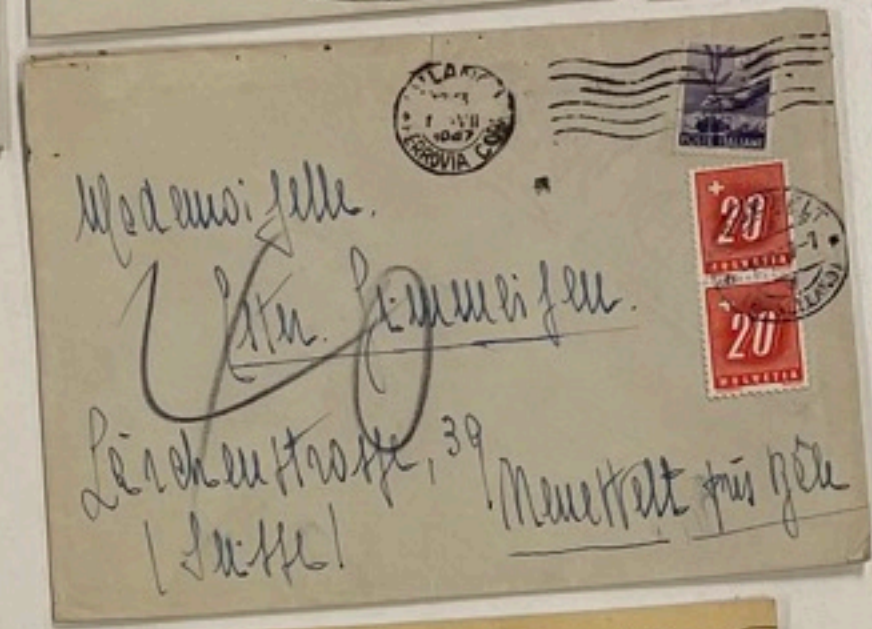 MILANO
1 VII
1947
FERROVIA CORR
POSTE ITALIANE
20
HELVETIA
20
HELVETIA
Mademoiselle.
Ester.
40
Lärchenstrasse, 39
Neuewelt près Bâle
(Suisse)